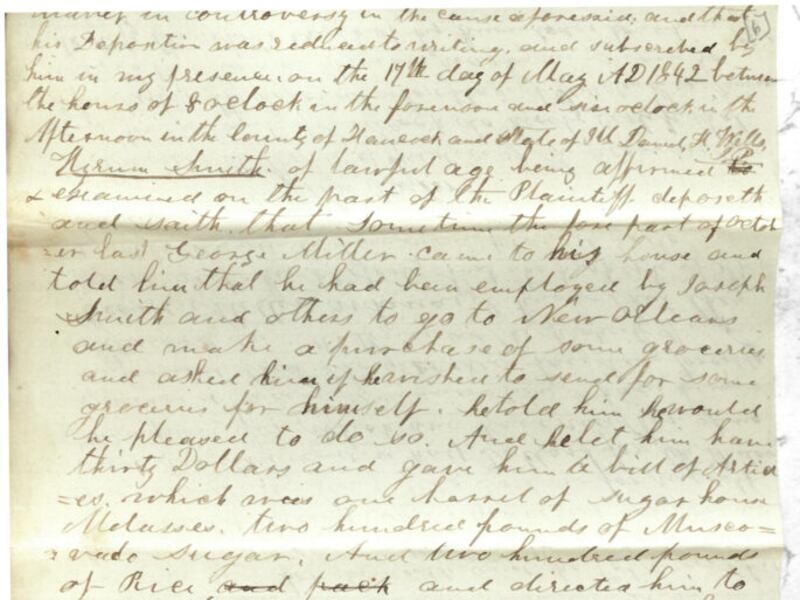 matter in controversy in the cause aforesaid, and that
his Deposition was reduced to writing, and subscribed by
him in my presence on the 17th day of May AD 1842 between
the hours of 8 oclock in the forenoon and six oclock in the
Afternoon in the County of Hancock and State of Ill Daniel H. Wells, JP.
Hyrum Smith. of lawful age being affirmed to
& examined on the part of the Plaintiff deposeth
and saith, that sometime the fore part of Octob
=er last George Miller came to his house and
told him that he had been employed by Joseph
Smith and others to go to New Orleans
and make a purchase of some groceries
and asked him if he wished to send for some
groceries for himself. he told him he would
be pleased to do so. And he let him have
thirty Dollars and gave him a bill of Articl
=es, which was one barrel of sugar house
Molasses. two hundred pounds of Musco=
=vado Sugar, And two hundred pounds
of Rice and pack and directed him to